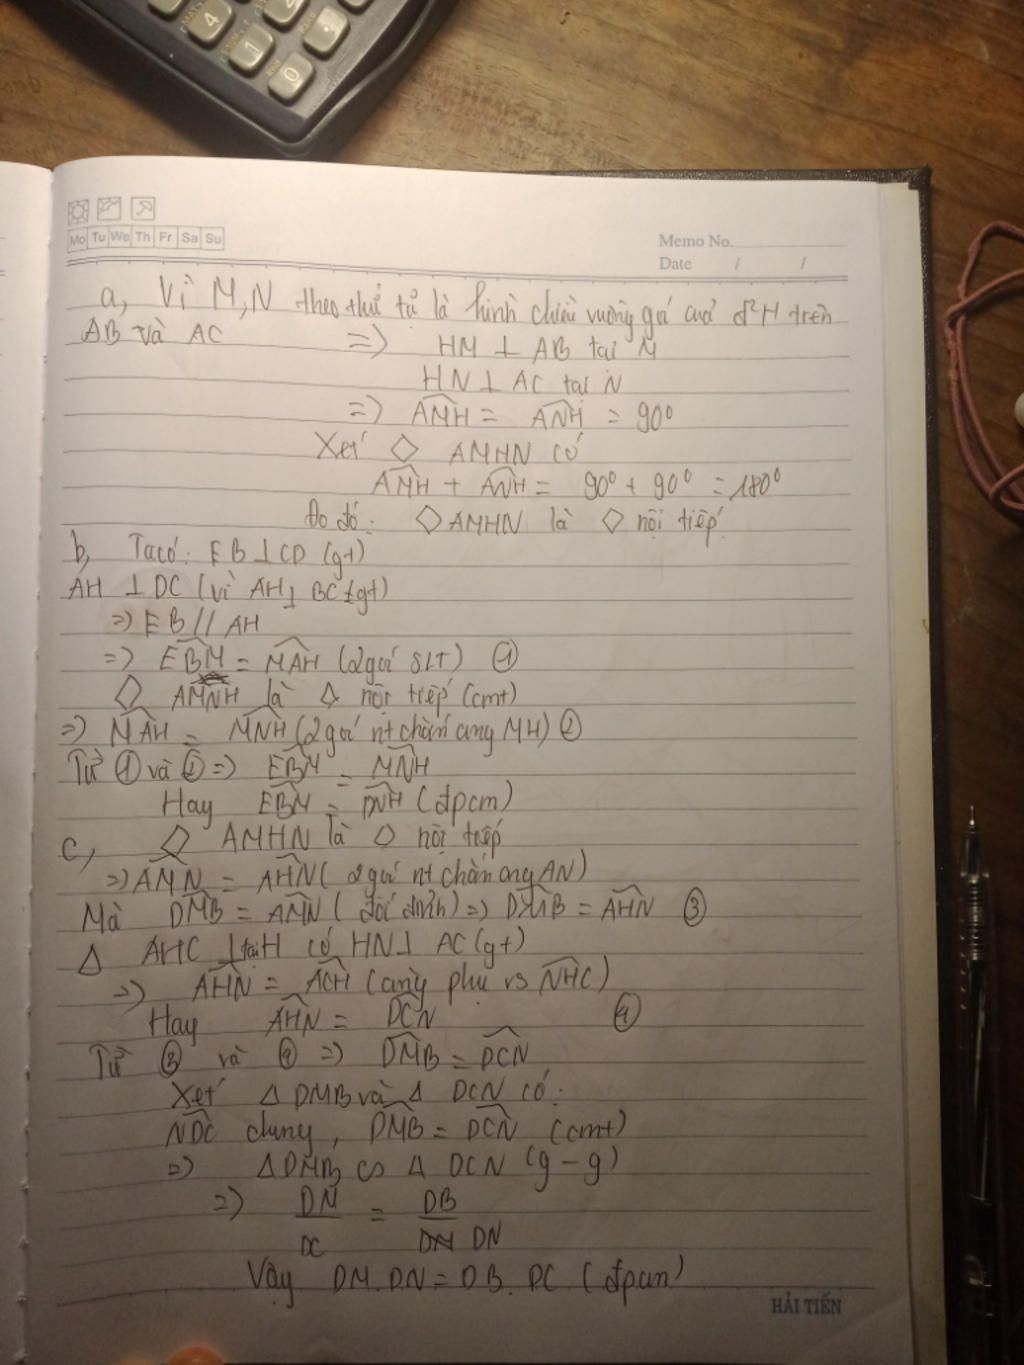 4
1
0
Mo Tu We Th Fr Sa Su
Memo No.
Date / /
a, Vì M, N theo thứ tự là hình chiếu vuông gó của đ²H trên
AB và AC => HM ⊥ AB tại M
HN ⊥ AC tại N
=> \widehat{AMH} = \widehat{ANH} = 90⁰
Xét ◇ AMHN có
\widehat{AMH} + \widehat{ANH} = 90⁰ + 90⁰ = 180⁰
Do đó: ◇ AMHN là ◇ nội tiếp
b, Ta có: EB ⊥ CD (gt)
AH ⊥ DC (vì AH ⊥ BC gt)
=> EB // AH
=> \widehat{EBM} = \widehat{MAH} (2 gó SLT) ①
◇ AMNH là ◇ nội tiếp (cmt)
=> \widehat{MAH} = \widehat{MNH} (2 gó nt chắn cung MH) ②
Từ ① và ② => \widehat{EBM} = \widehat{MNH}
Hay \widehat{EBM} = \widehat{DNH} (đpcm)
c, ◇ AMHN là ◇ nội tiếp
=> \widehat{AMN} = \widehat{AHN} (2 gó nt chắn cung AN)
Mà \widehat{DMB} = \widehat{AMN} (đối đỉnh) => \widehat{DMB} = \widehat{AHN} ③
Δ AHC ⊥ tại H có HN ⊥ AC (gt)
=> \widehat{AHN} = \widehat{ACH} (cùng phụ vs \widehat{NHC})
Hay \widehat{AHN} = \widehat{DCN} ④
Từ ③ và ④ => \widehat{DMB} = \widehat{DCN}
Xét Δ DMB và Δ DCN có:
\widehat{NDC} chung, \widehat{DMB} = \widehat{DCN} (cmt)
=> Δ DMB ∽ Δ DCN (g-g)
=> DM/DC = DB/DN
Vậy DM.DN = DB.DC (đpcm)
HẢI TIẾN